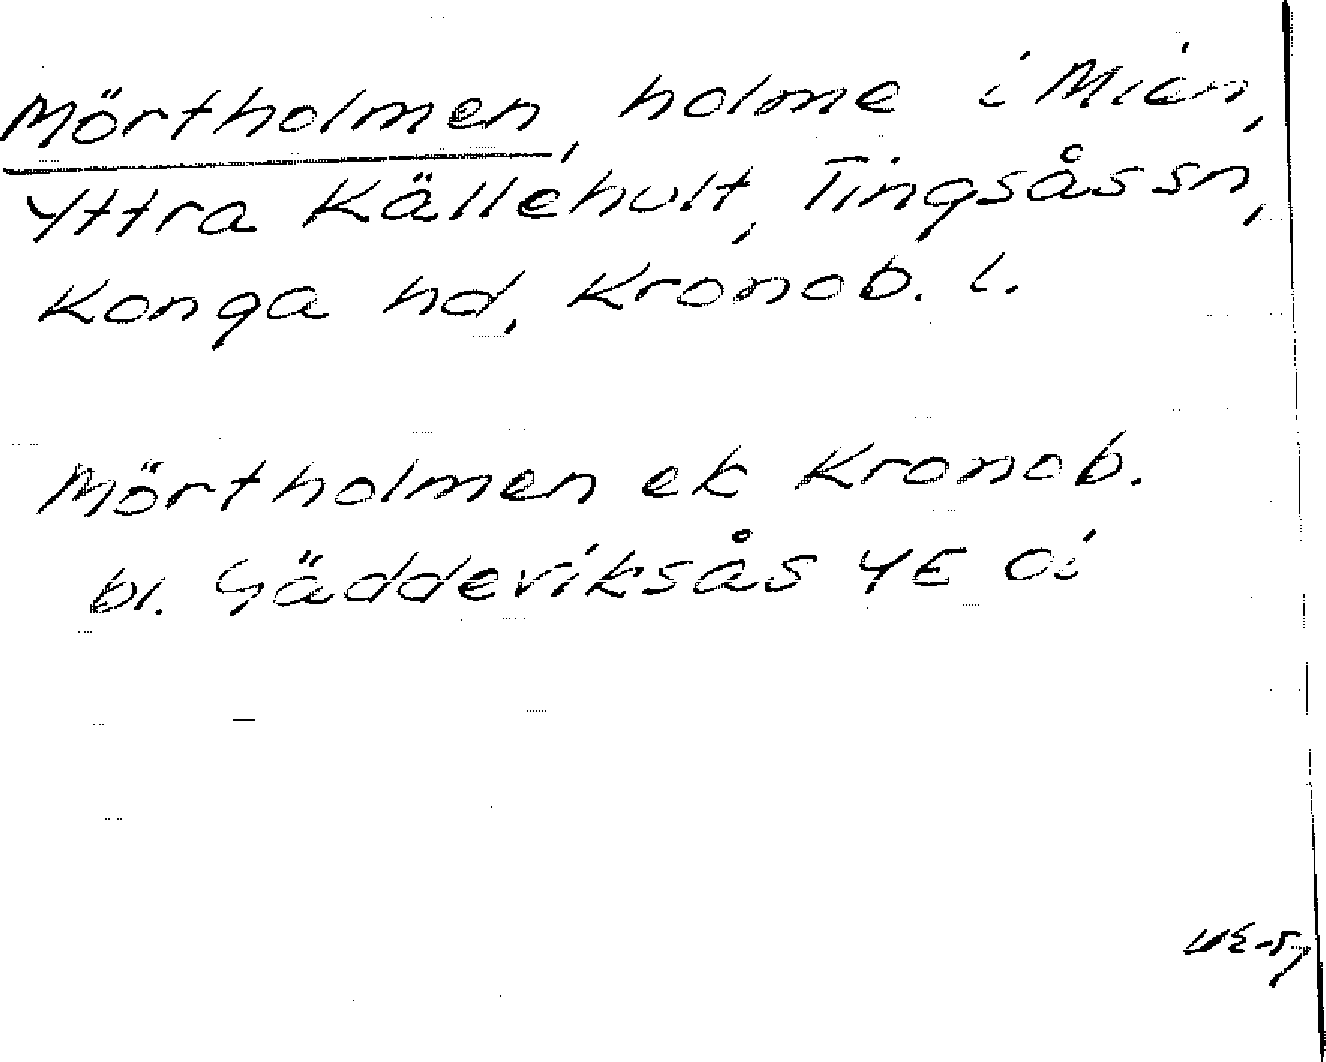 Mörtholmen, holme i Mien,
Yttra Källehult, Tingsås sn,
Konga hd, Kronob. l.
Mörtholmen ek Kronob.
bl. Gäddeviksås YE Öi